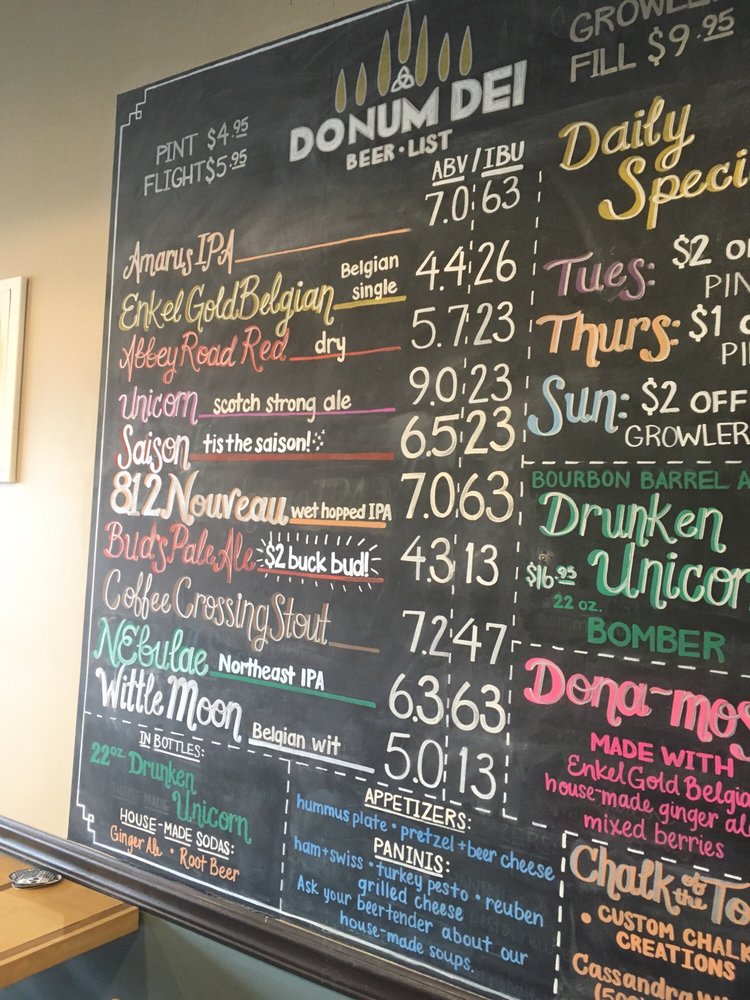 PINT $4.95
FLIGHT $5.95
DONUM DEI
BEER • LIST
GROWLER
FILL $9.95
ABV / IBU
Amarus IPA 7.0 63
Enkel Gold Belgian Belgian single 4.4 26
Abbey Road Red dry 5.7 23
Unicorn scotch strong ale 9.0 23
Saison tis the saison! 6.5 23
812 Nouveau wet hopped IPA 7.0 63
Bud's Pale Ale $2 buck bud! 4.3 13
Coffee Crossing Stout 7.2 47
NEbulae Northeast IPA 6.3 63
Wittle Moon Belgian wit 5.0 13
IN BOTTLES:
22oz. Drunken
Unicorn
HOUSE-MADE SODAS:
Ginger Ale • Root Beer
APPETIZERS:
hummus plate • pretzel + beer cheese
PANINIS:
ham+swiss • turkey pesto • reuben
grilled cheese
Ask your beertender about our
house-made soups.
Daily
Speci
Tues: $2 O
PIN
Thurs: $1
PI
Sun: $2 OFF
GROWLER
BOURBON BARREL A
Drunken
$16.95 Unicor
22 oz.
BOMBER
Dona-mos
MADE WITH
Enkel Gold Belgia
house-made ginger al
mixed berries
Chalk of the To
• CUSTOM CHALK
CREATIONS
Cassandra
(50